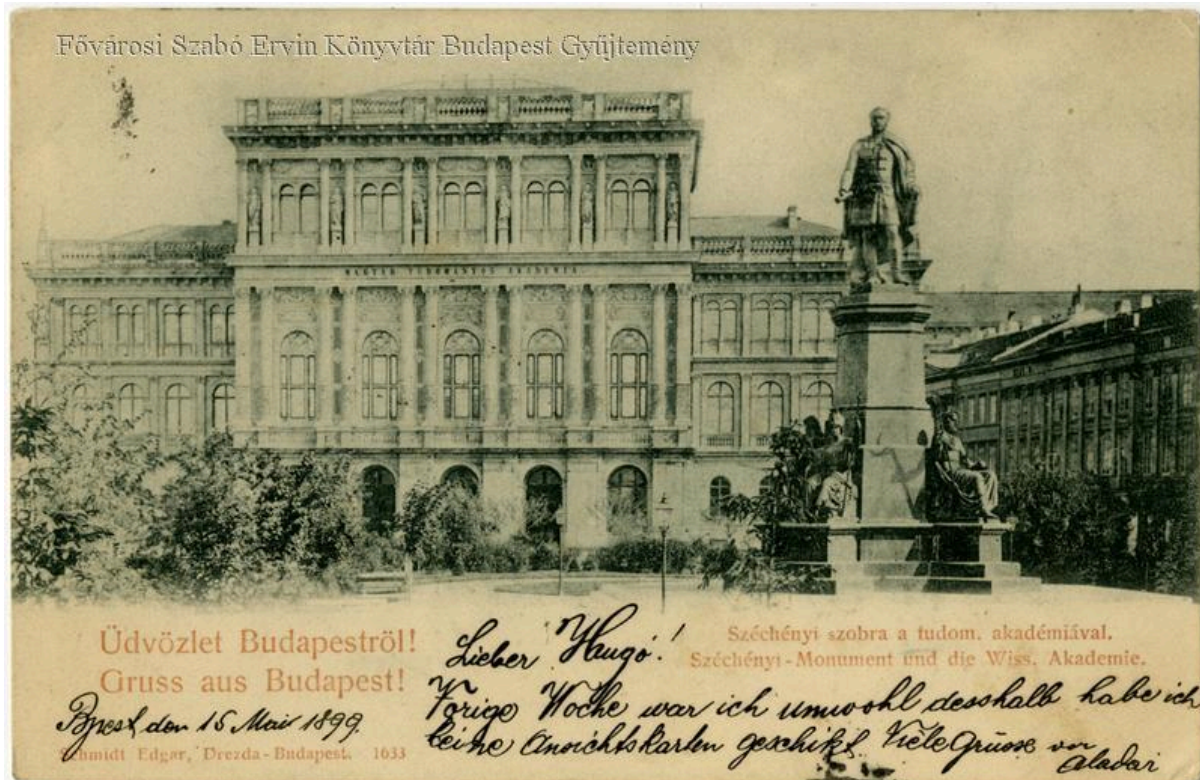 Fővárosi Szabó Ervin Könyvtár Budapest Gyűjtemény
MAGYAR TUDOMÁNYOS AKADÉMIA
Üdvözlet Budapestről!
Gruss aus Budapest!
Széchényi szobra a tudom. akadémiával.
Széchényi-Monument und die Wiss. Akademie.
Bpest, den 15 Mai 1899.
Schmidt Edgar, Drezda-Budapest. 1633
Lieber Hugó!
Vorige Woche war ich unwohl desshalb habe ich
keine Ansichtskarten geschikt. Viele Grüsse von
Aladar